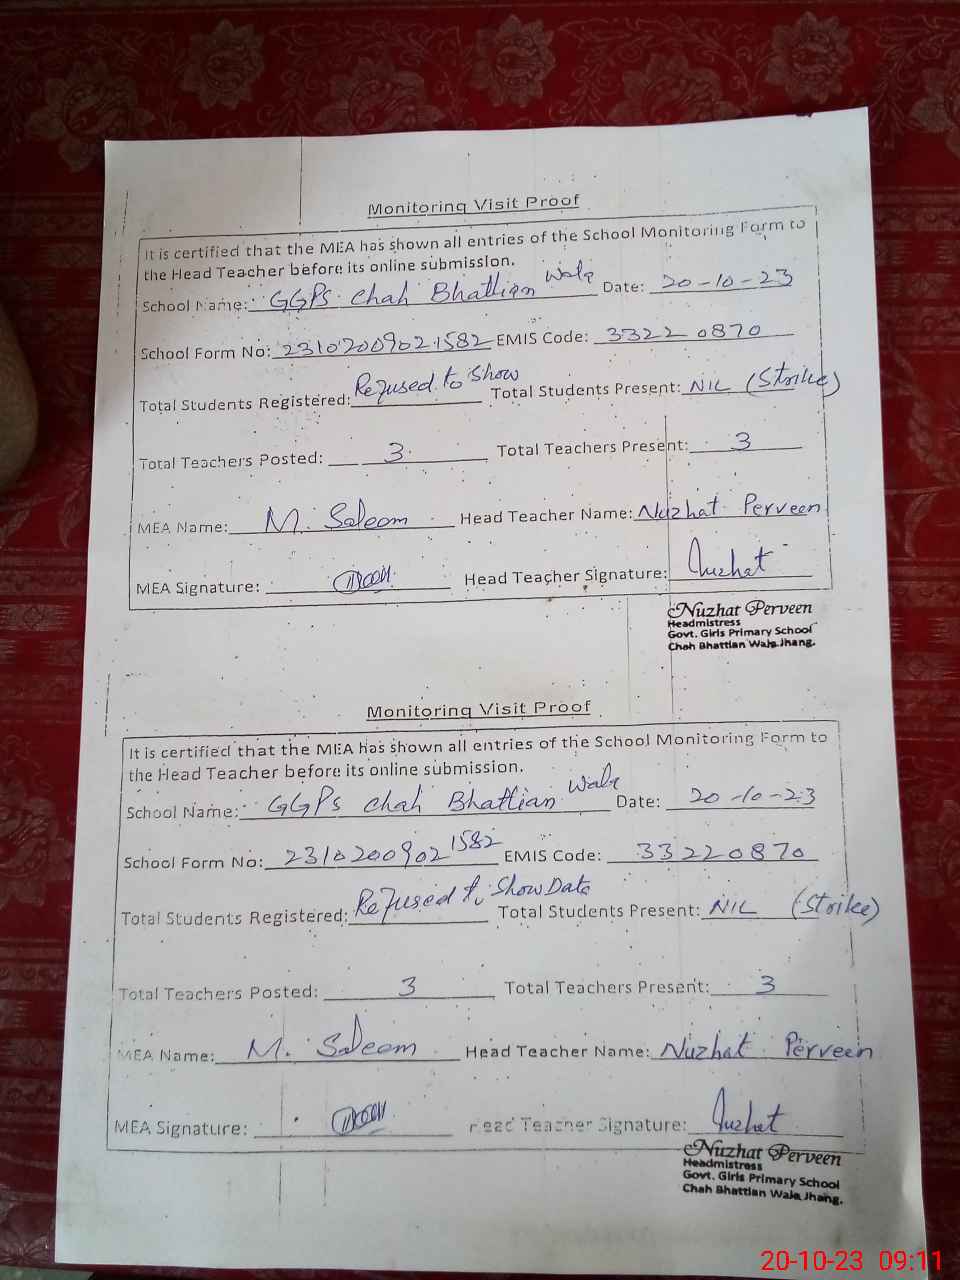 Monitoring Visit Proof
It is certified that the MEA has shown all entries of the School Monitoring Form to
the Head Teacher before its online submission.
School Name: GGPS Chah Bhattian Wala Date: 20-10-23
School Form No: 23102009021582 EMIS Code: 33220870
Total Students Registered: Refused to Show Total Students Present: NIL (Strike)
Total Teachers Posted: 3 Total Teachers Present: 3
MEA Name: M. Saleem Head Teacher Name: Nuzhat Perveen
MEA Signature: Head Teacher Signature: Nuzhat
Nuzhat Perveen
Headmistress
Govt. Girls Primary School
Chah Bhattian Wala Jhang.
Monitoring Visit Proof
It is certified that the MEA has shown all entries of the School Monitoring Form to
the Head Teacher before its online submission.
School Name: GGPS Chah Bhattian Wala Date: 20-10-23
School Form No: 23102009021582 EMIS Code: 33220870
Total Students Registered: Refused to Show Data Total Students Present: NIL (Strike)
Total Teachers Posted: 3 Total Teachers Present: 3
MEA Name: M. Saleem Head Teacher Name: Nuzhat Perveen
MEA Signature: Head Teacher Signature: Nuzhat
Nuzhat Perveen
Headmistress
Govt. Girls Primary School
Chah Bhattian Wala Jhang.
20-10-23 09:11